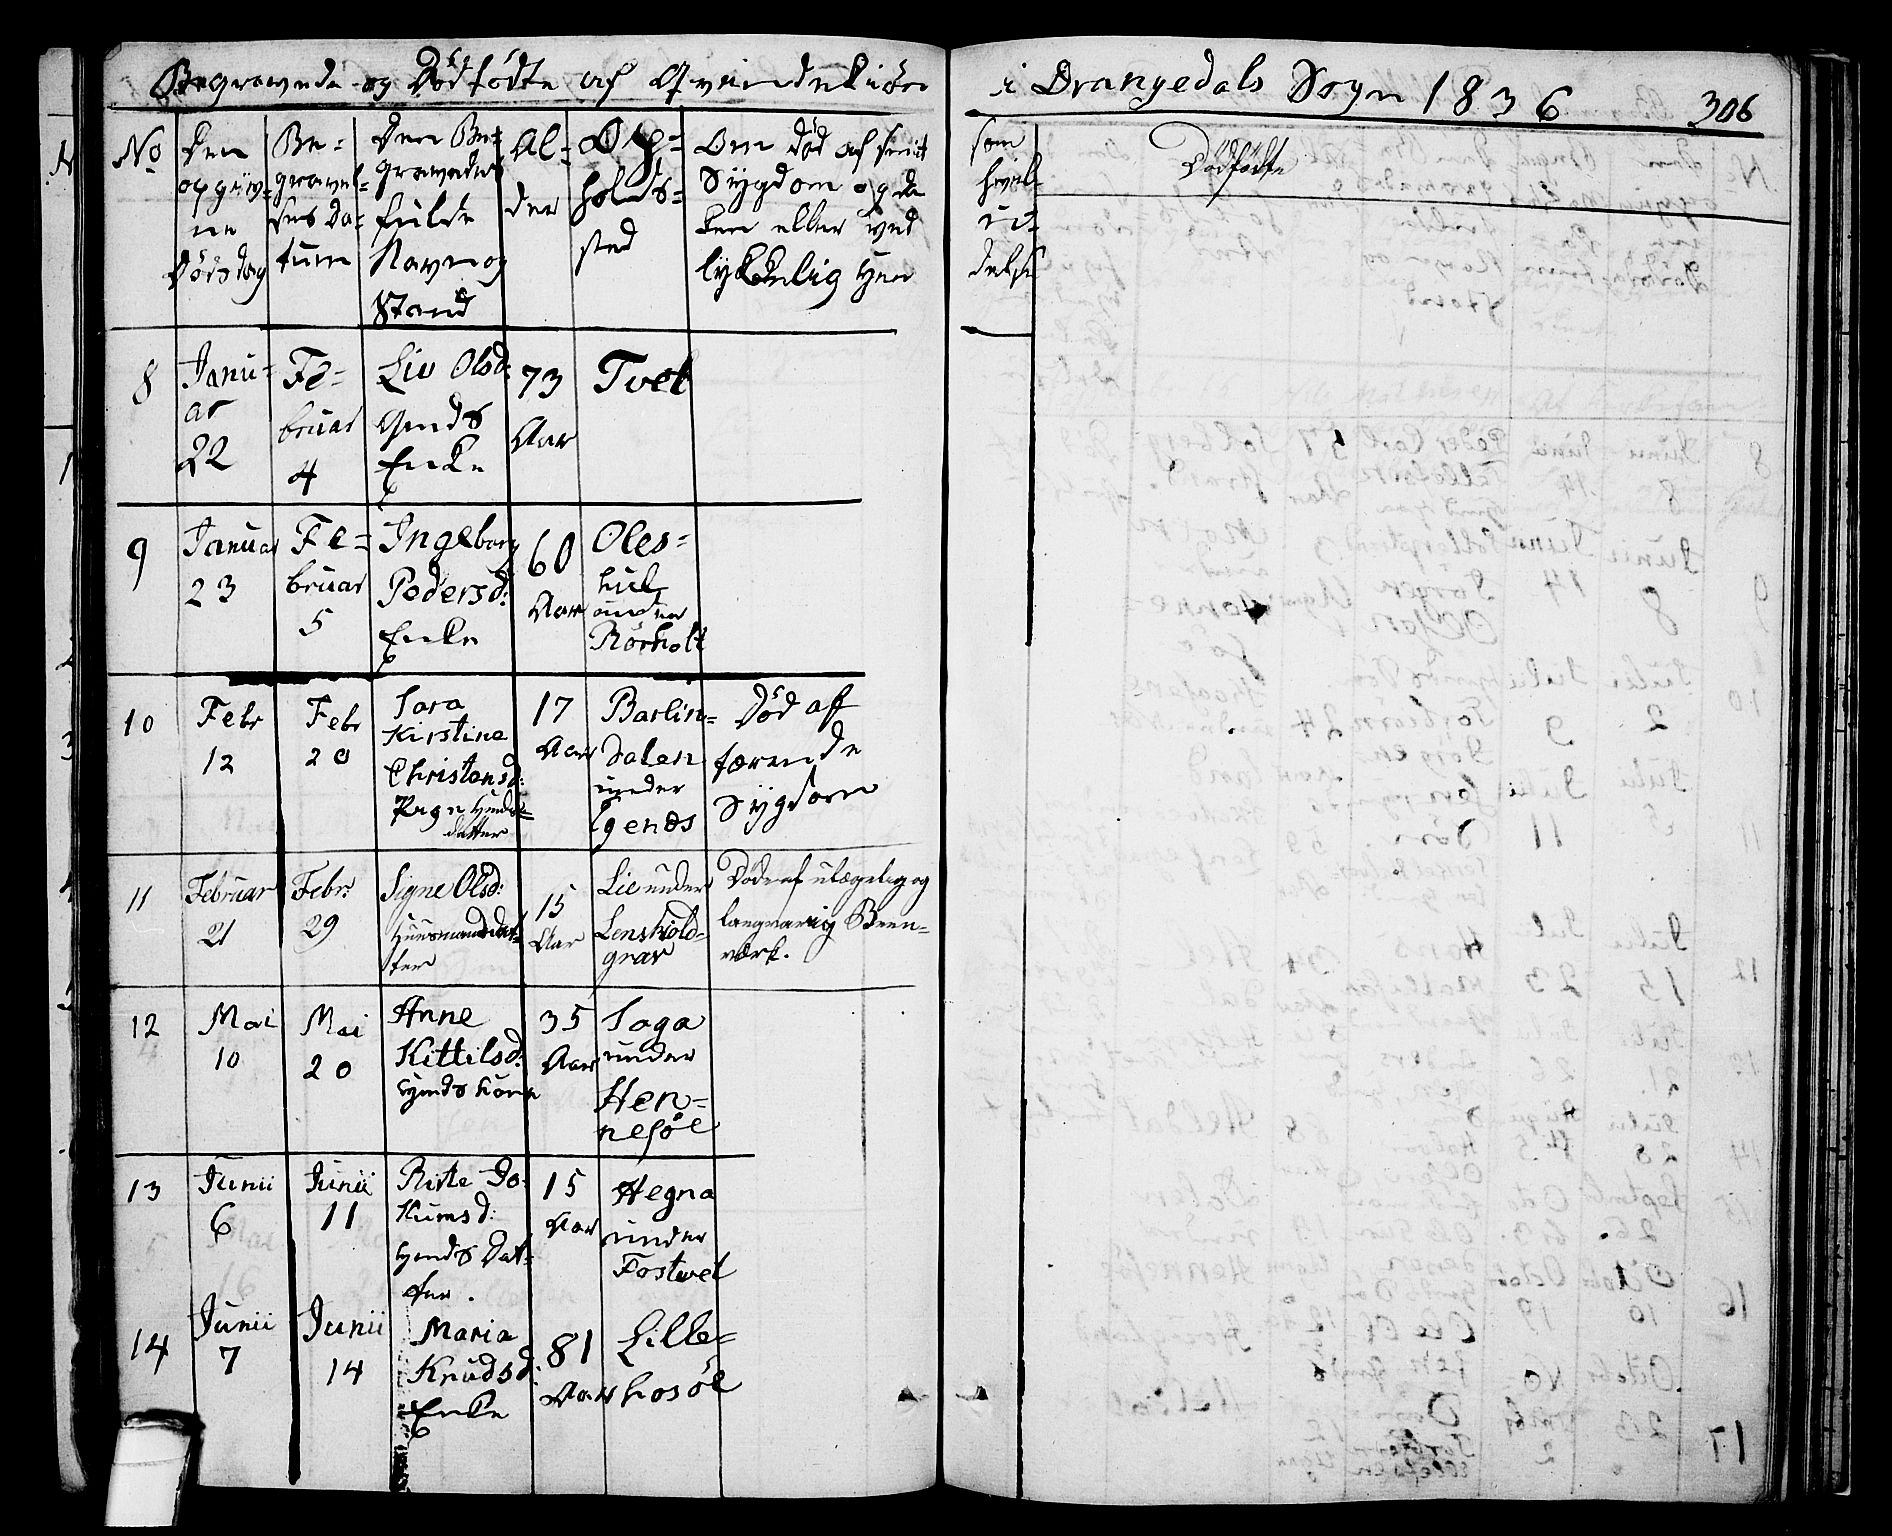 Begravede og Dödfödte af Qvindekiön
i Drangedals Sogn 1836
306
No
Den opgivne Dödsdag
Begravelses Datum
Den Begravedes fulde Navn og Stand
Alder
Opholdssted
Om död af smit Sygdom og da
ved
lykkelig Hen
som
hvil
delse
Dödfödte
8
Januar 22
Februar 4
Liv Olsd:
Enke
73 Aar
Tvet
9
Januar 23
Februar 5
Ingeborg Pedersd:
Enke
60 Aar
Oleshul under Rörholt
10
Febr 12
Febr 20
Sara Kirstine Christensd:
datter
17 Aar
Barlindalen under
Död af
Sygdom
11
Februar 21
Febr: 29
Signe Olsd:
Huusmandsdatter
15 Aar
Lie under Lensholdgrav
Döde af ulægelig og langvarig Beenværk.
12
Mai 10
Mai 20
Anne Kittilsd:
Kone
35 Aar
Saga under Hennesöe
13
Junii 6
Junii 11
Datter.
15 Aar
Hegna under Fostvet
14
Junii 7
Junii 14
Maria Knudsd:
Enke
81 Aar
Lillehosöe